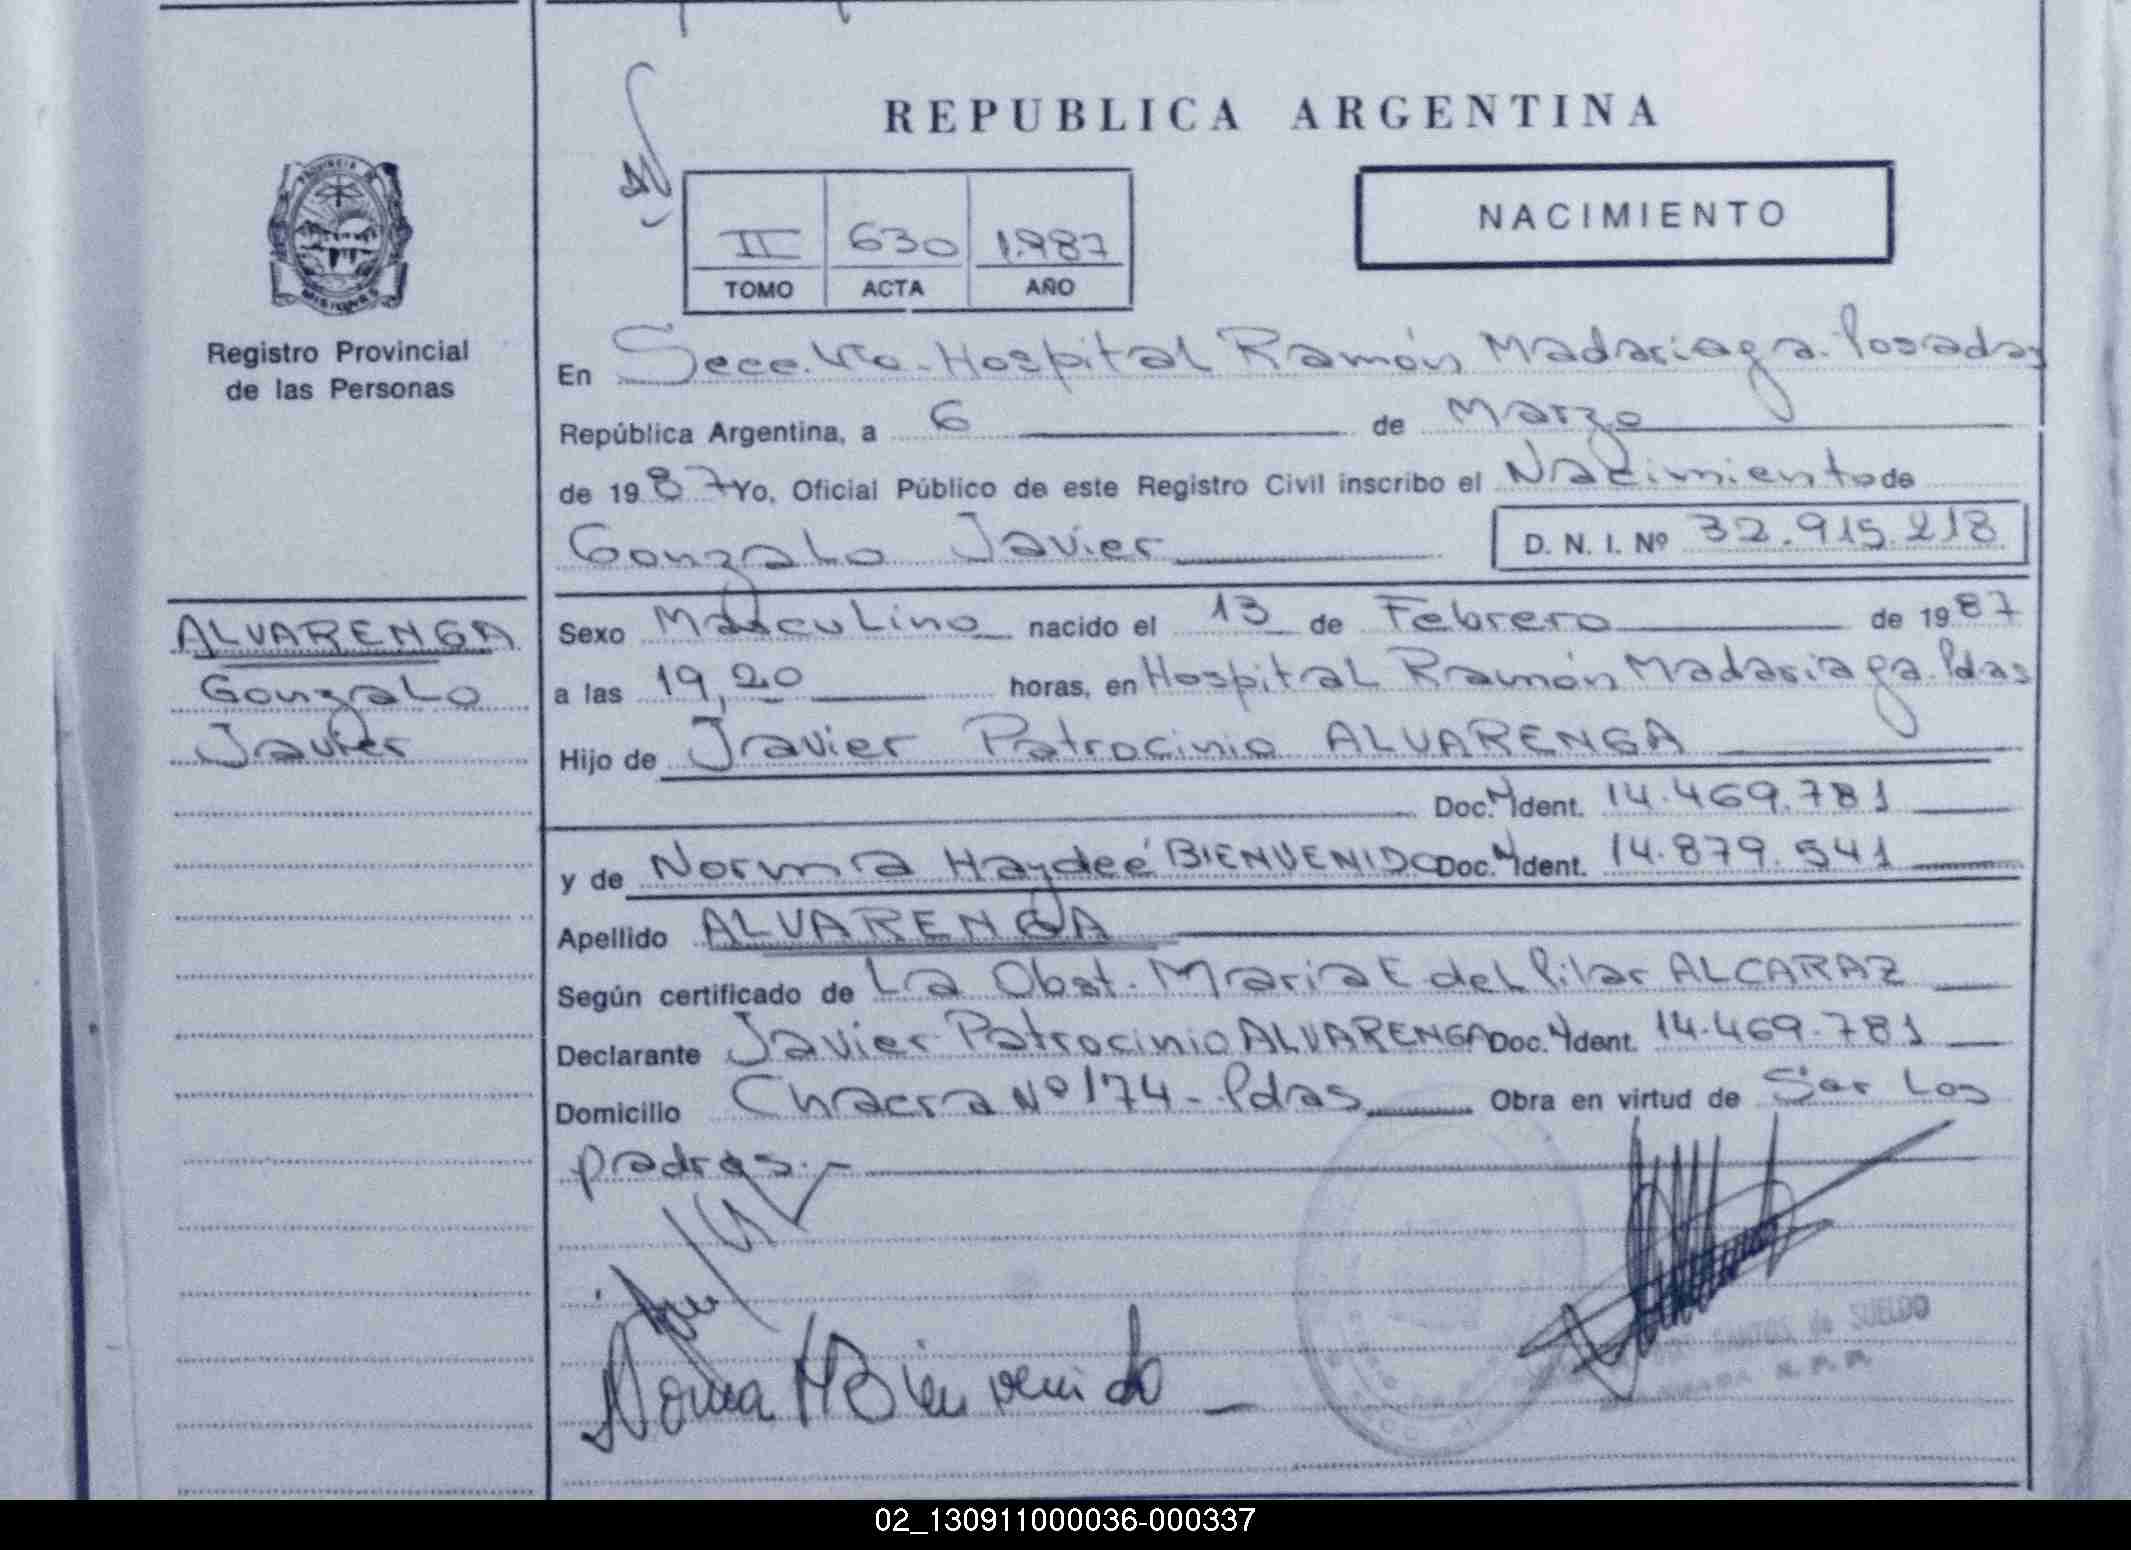 REPUBLICA ARGENTINA
PROVINCIA DE
MISIONES
Registro Provincial
de las Personas
II 630 1.987
TOMO ACTA AÑO
NACIMIENTO
En Secc. Vta. Hospital Ramón Madariaga. Posadas
República Argentina, a 6 de Marzo
de 1987 Yo, Oficial Público de este Registro Civil inscribo el Nacimiento de
Gonzalo Javier D. N. I. Nº 32.915.218
ALVARENGA
Gonzalo
Javier
Sexo Masculino nacido el 13 de Febrero de 1987
a las 19,20 horas, en Hospital Ramón Madariaga. Pdas
Hijo de Javier Patrocinio ALVARENGA
Doc. Ident. 14.469.781
y de Norma Haydeé BIENVENIDO Doc. Ident. 14.879.541
Apellido ALVARENGA
Según certificado de La Obst. Maria E del Pilar ALCARAZ
Declarante Javier Patrocinio ALVARENGA Doc. Ident. 14.469.781
Domicilio Chacra Nº 174 - Pdas Obra en virtud de Ser Los
padres.-
Norma H Bienvenido
SANTOS de SUELDO
02_130911000036-000337